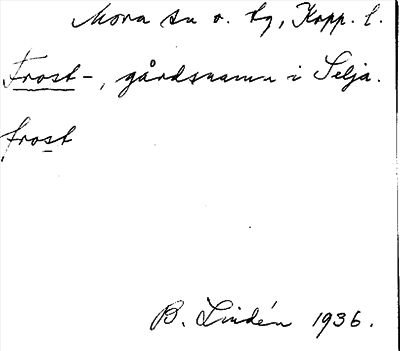 Mora sn o. tg, Kopp. l.
Frost-, gårdsnamn i Selja.
frost
B. Lindén 1936.